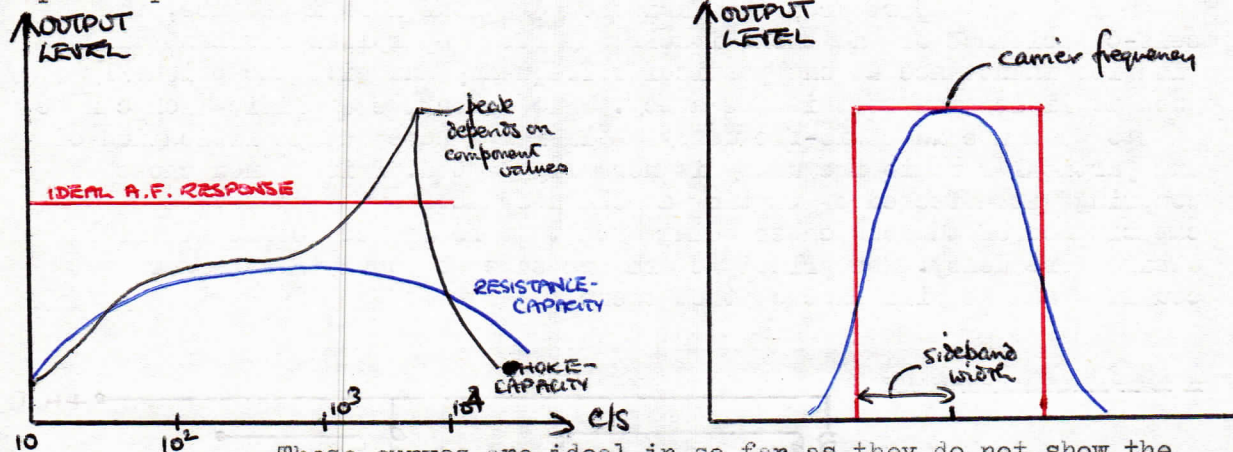 OUTPUT
LEVEL
peak
depends on
component
values
IDEAL A.F. RESPONSE
RESISTANCE-
CAPACITY
CHOKE-
CAPACITY
10
10²
10³
10⁴
C/S
OUTPUT
LEVEL
carrier frequency
sideband
width
These curves are ideal in so far as they do not show the